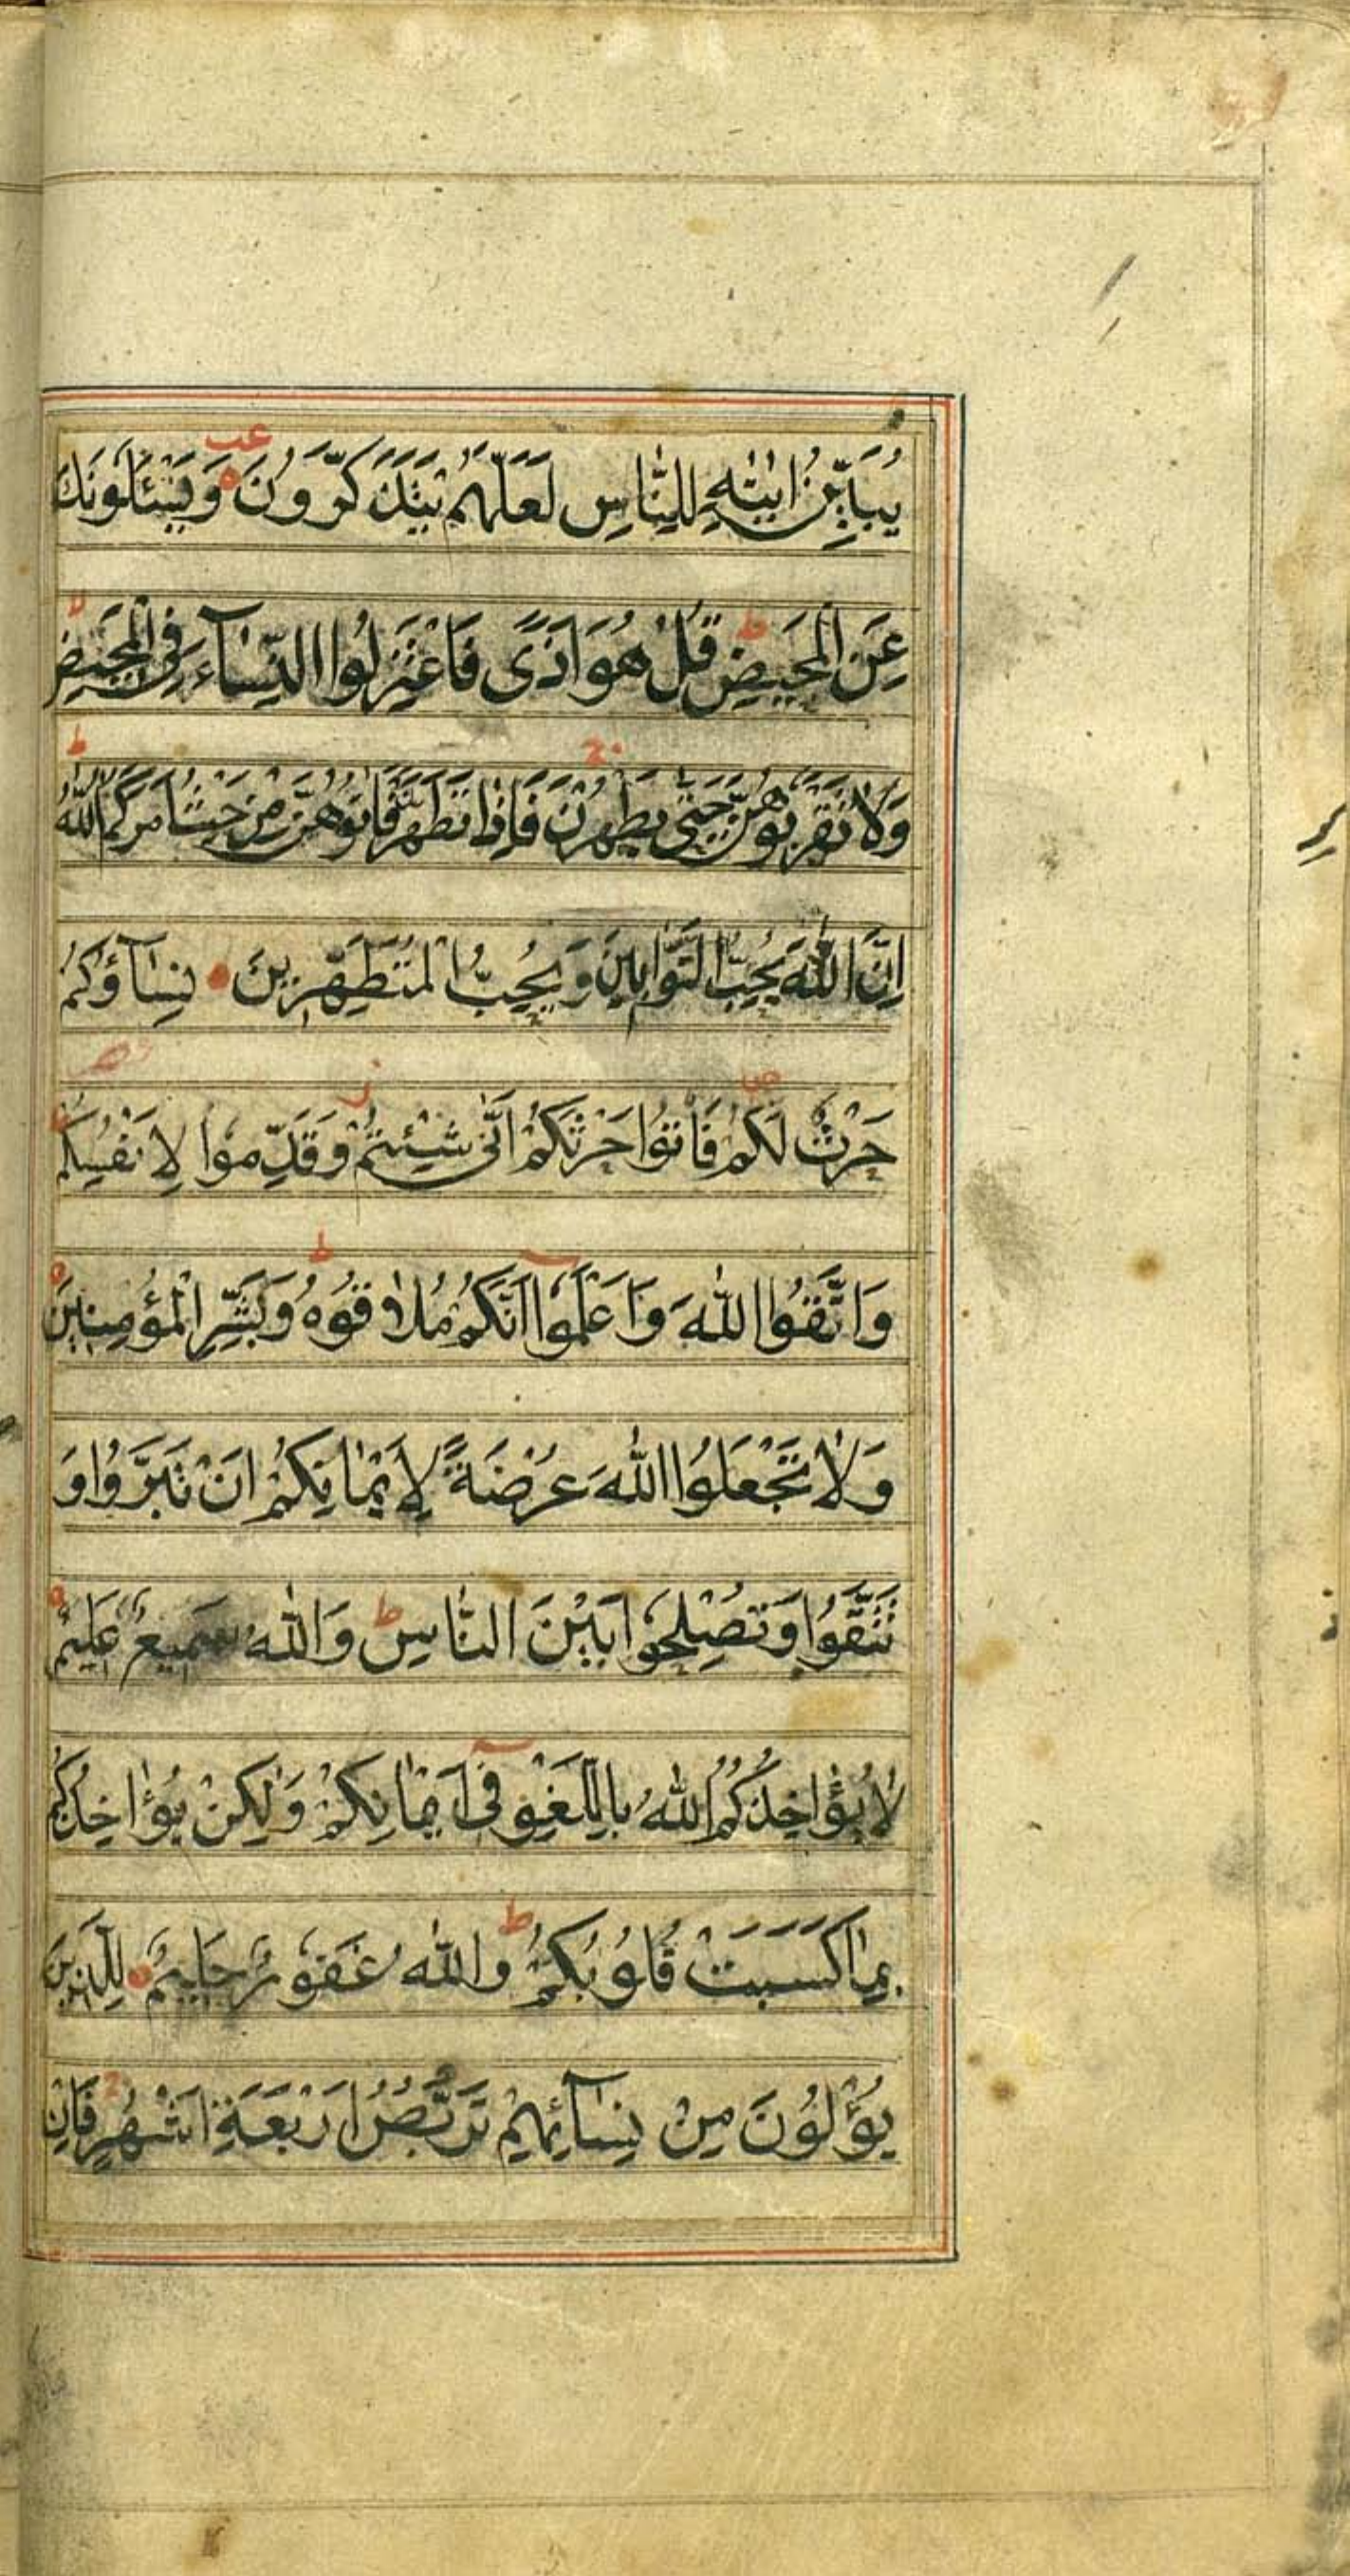 يُبَيِّنُ اٰيٰتِهٖ لِلنَّاسِ لَعَلَّهُمْ يَتَذَكَّرُوْنَ وَيَسْئَلُوْنَكَ
عَنِ الْمَحِيْضِ ط قُلْ هُوَ اَذًى فَاعْتَزِلُوا النِّسَآءَ فِى الْمَحِيْضِ
وَلَا تَقْرَبُوْهُنَّ حَتّٰى يَطْهُرْنَ ج فَاِذَا تَطَهَّرْنَ فَاْتُوْهُنَّ مِنْ حَيْثُ اَمَرَكُمُ اللّٰهُ ط
اِنَّ اللّٰهَ يُحِبُّ التَّوَّابِيْنَ وَيُحِبُّ الْمُتَطَهِّرِيْنَ نِسَآؤُكُمْ
حَرْثٌ لَكُمْ ص فَاْتُوْا حَرْثَكُمْ اَنّٰى شِئْتُمْ ز وَقَدِّمُوْا لِاَنْفُسِكُمْ
وَاتَّقُوا اللّٰهَ وَاعْلَمُوْٓا اَنَّكُمْ مُلَاقُوْهُ ط وَبَشِّرِ الْمُؤْمِنِيْنَ
وَلَا تَجْعَلُوا اللّٰهَ عُرْضَةً لِاَيْمَانِكُمْ اَنْ تَبَرُّوْا وَ
تَتَّقُوْا وَتُصْلِحُوْا بَيْنَ النَّاسِ ط وَاللّٰهُ سَمِيْعٌ عَلِيْمٌ
لَا يُؤَاخِذُكُمُ اللّٰهُ بِاللَّغْوِ فِىٓ اَيْمَانِكُمْ وَلٰكِنْ يُؤَاخِذُكُمْ
بِمَا كَسَبَتْ قُلُوْبُكُمْ ط وَاللّٰهُ غَفُوْرٌ حَلِيْمٌ لِلَّذِيْنَ
يُؤْلُوْنَ مِنْ نِسَآئِهِمْ تَرَبُّصُ اَرْبَعَةِ اَشْهُرٍ ج فَاِنْ